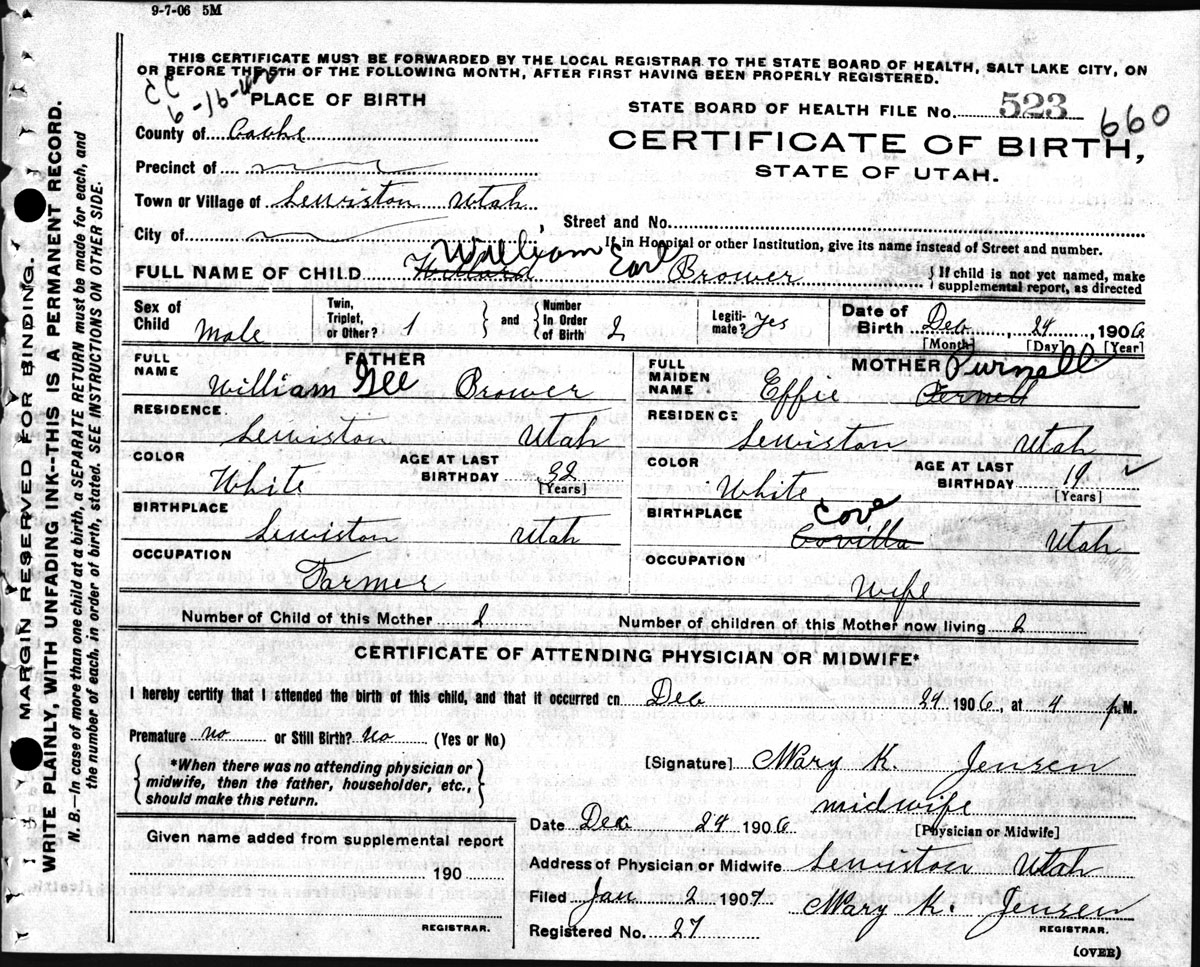 9-7-06 5M
THIS CERTIFICATE MUST BE FORWARDED BY THE LOCAL REGISTRAR TO THE STATE BOARD OF HEALTH, SALT LAKE CITY, ON
OR BEFORE THE 5TH OF THE FOLLOWING MONTH, AFTER FIRST HAVING BEEN PROPERLY REGISTERED.
PLACE OF BIRTH
STATE BOARD OF HEALTH FILE No. 523 660
County of Cache
CERTIFICATE OF BIRTH,
Precinct of
STATE OF UTAH.
Town or Village of Lewiston Utah
Street and No.
City of
If in Hospital or other Institution, give its name instead of Street and number.
William Earl
FULL NAME OF CHILD Willard Brower
{If child is not yet named, make
supplemental report, as directed
Sex of Child Male
Twin, Triplet, or Other? 1 } and { Number In Order of Birth 2
Legitimate? Yes
Date of Birth Dec, 24, 1906
[Month] [Day] [Year]
FATHER
FULL NAME William Gee Brower
RESIDENCE
Lewiston Utah
COLOR White
AGE AT LAST BIRTHDAY 32
[Years]
BIRTHPLACE
Lewiston Utah
OCCUPATION
Farmer
MOTHER Purnell
FULL MAIDEN NAME Effie Fernell
RESIDENCE
Lewiston Utah
COLOR White
AGE AT LAST BIRTHDAY 19
[Years]
BIRTHPLACE Cove
Covilla Utah
OCCUPATION
Wife
Number of Child of this Mother 2
Number of children of this Mother now living 2
CERTIFICATE OF ATTENDING PHYSICIAN OR MIDWIFE*
I hereby certify that I attended the birth of this child, and that it occurred on Dec 24 1906, at 4 p.M.
Premature No or Still Birth? No (Yes or No)
{ *When there was no attending physician or
midwife, then the father, householder, etc.,
should make this return. }
[Signature] Mary K. Jensen
midwife
[Physician or Midwife]
Date Dec 24 1906
Given name added from supplemental report
190
REGISTRAR.
Address of Physician or Midwife Lewiston Utah
Filed Jan 2 1907 Mary K. Jensen
REGISTRAR.
Registered No. 27
(OVER)
MARGIN RESERVED FOR BINDING.
WRITE PLAINLY, WITH UNFADING INK--THIS IS A PERMANENT RECORD.
N. B.—In case of more than one child at a birth, a SEPARATE RETURN must be made for each, and
the number of each, in order of birth, stated. SEE INSTRUCTIONS ON OTHER SIDE.